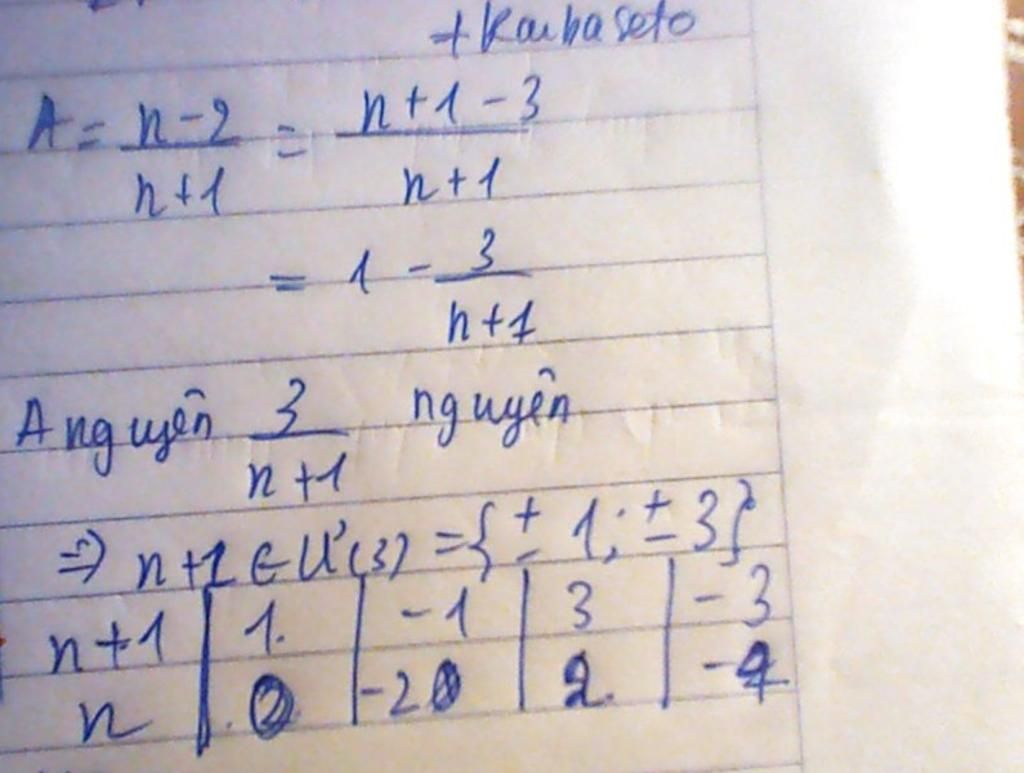 + Kaibaseto
A = \frac{n-2}{n+1} = \frac{n+1-3}{n+1}
= 1 - \frac{3}{n+1}
A nguyên \frac{3}{n+1} nguyên
=> n+1 ∈ Ư(3) = {± 1; ± 3}
n+1 | 1. | -1 | 3 | -3
n | 0 | -2 | 2 | -4